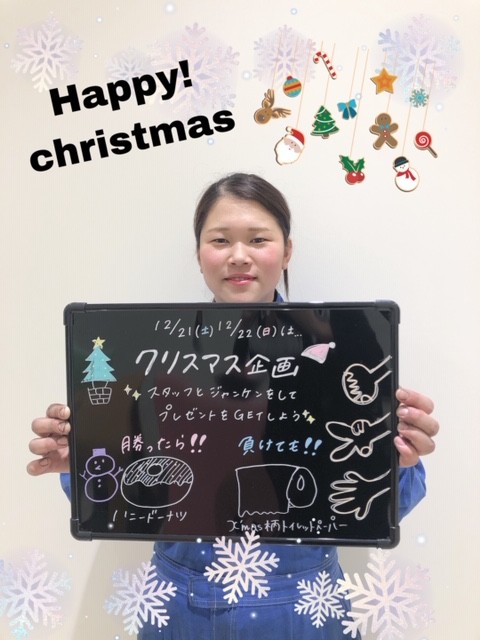 Happy!
christmas
12/21(土) 12/22(日)は...
クリスマス企画
スタッフとジャンケンをして
プレゼントをGETしよう
勝ったら!!
負けても!!
ハニードーナツ
X'mas柄トイレットペーパー